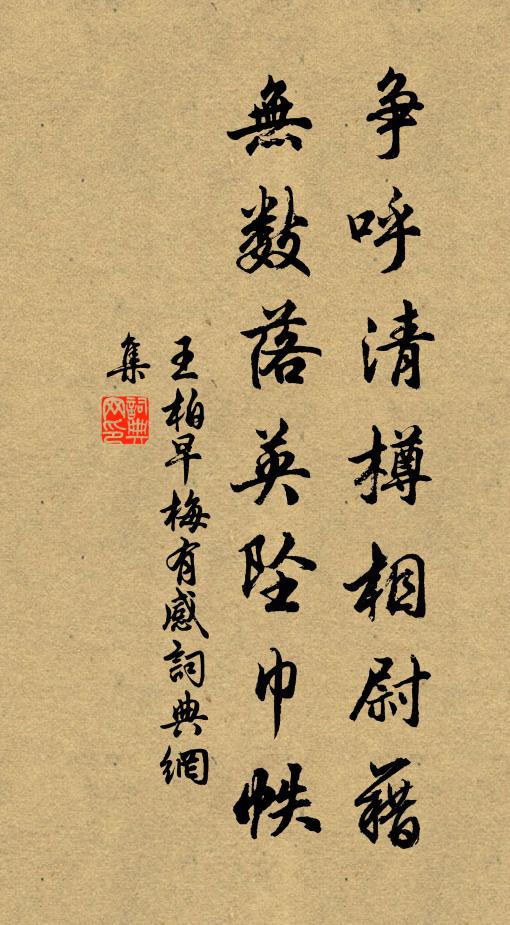 争呼清樽相尉藉
無数落英坠巾帙
王柏早梅有感詞典網
集
詞典
网印